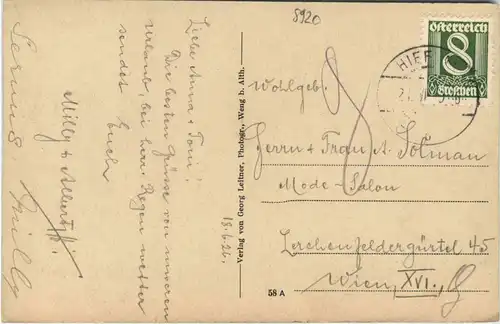 8920
Liebe Anna & Toni!
Die besten Grüsse von unseren
Urlaub, bei Regenwetter
sendet Euch
Milly &
Servus
Milly
18.6.26.
Verlag von Georg Leitner, Photogr., Weng b. Alth.
58 A
österreich
8
Groschen
HIEF
Wohlgeb.
Herrn & Frau A. Tolman
Mode-Salon
Lerchenfeldergürtel 45
Wien, XVI.